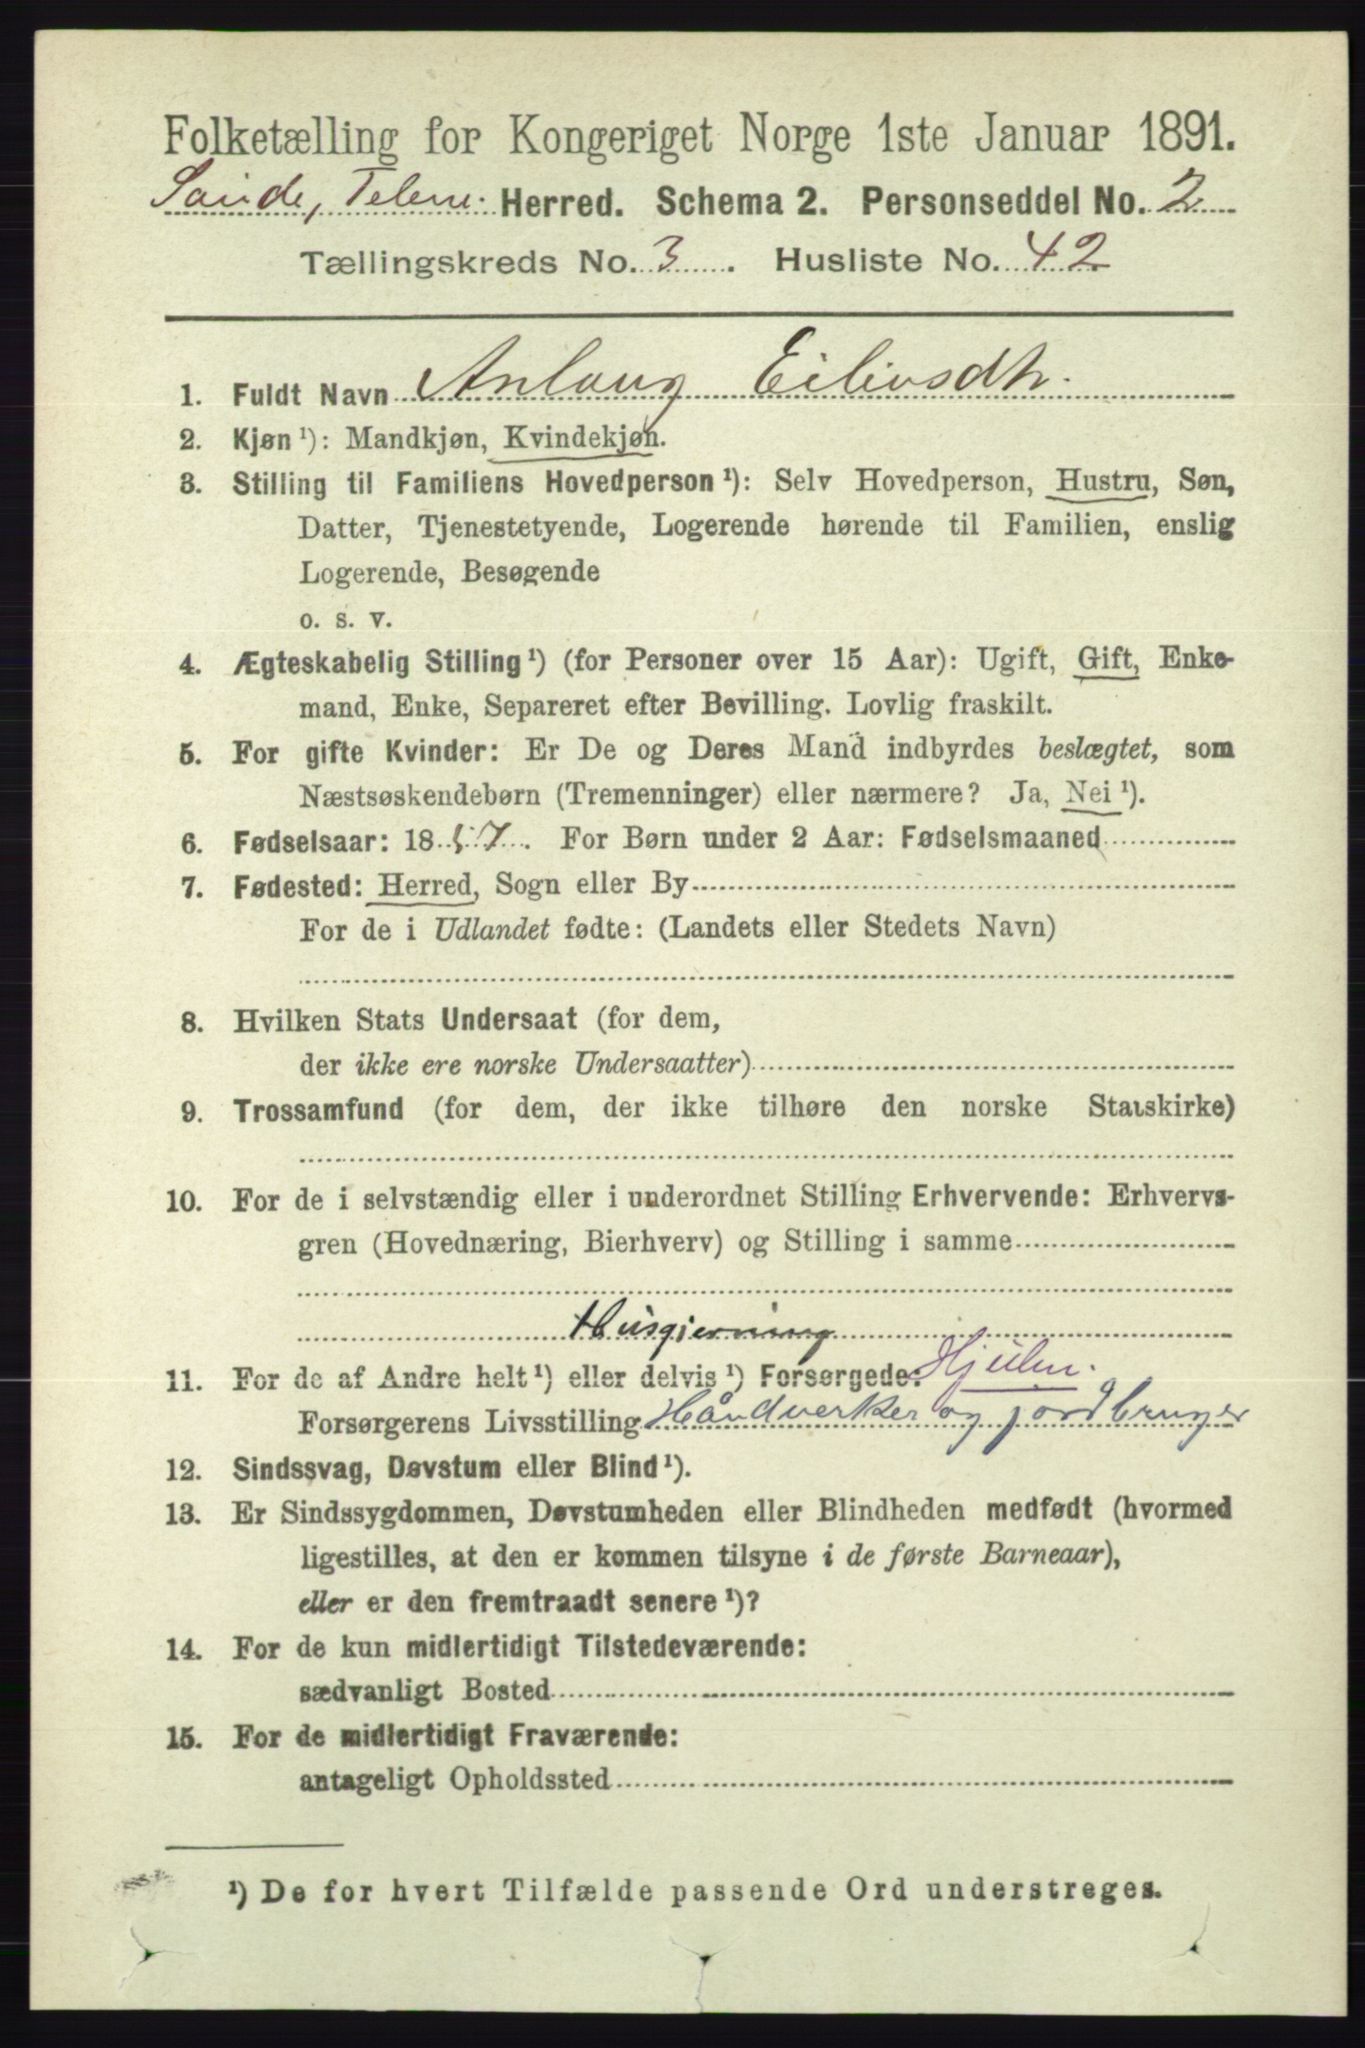 Folketælling for Kongeriget Norge 1ste Januar 1891.
Saude, Telem. Herred. Schema 2. Personseddel No. 2
Tællingskreds No. 3. Husliste No. 42
1. Fuldt Navn Anlaug Eilivsdtr.
2. Kjøn ¹): Mandkjøn, Kvindekjøn.
3. Stilling til Familiens Hovedperson ¹): Selv Hovedperson, Hustru, Søn,
Datter, Tjenestetyende, Logerende hørende til Familien, enslig
Logerende, Besøgende
o. s. v.
4. Ægteskabelig Stilling ¹) (for Personer over 15 Aar): Ugift, Gift, Enke-
mand, Enke, Separeret efter Bevilling. Lovlig fraskilt.
5. For gifte Kvinder: Er De og Deres Mand indbyrdes beslægtet, som
Næstsøskendebørn (Tremenninger) eller nærmere? Ja, Nei ¹).
6. Fødselsaar: 1857. For Børn under 2 Aar: Fødselsmaaned
7. Fødested: Herred, Sogn eller By
For de i Udlandet fødte: (Landets eller Stedets Navn)
8. Hvilken Stats Undersaat (for dem,
der ikke ere norske Undersaatter)
9. Trossamfund (for dem, der ikke tilhøre den norske Statskirke)
10. For de i selvstændig eller i underordnet Stilling Erhvervende: Erhvervs-
gren (Hovednæring, Bierhverv) og Stilling i samme
Husgjerning
11. For de af Andre helt ¹) eller delvis ¹) Forsørgede: Hjulm.
Forsørgerens Livsstilling Håndverker og jordbruger
12. Sindssvag, Døvstum eller Blind ¹).
13. Er Sindssygdommen, Døvstumheden eller Blindheden medfødt (hvormed
ligestilles, at den er kommen tilsyne i de første Barneaar),
eller er den fremtraadt senere ¹)?
14. For de kun midlertidigt Tilstedeværende:
sædvanligt Bosted
15. For de midlertidigt Fraværende:
antageligt Opholdssted
¹) De for hvert Tilfælde passende Ord understreges.